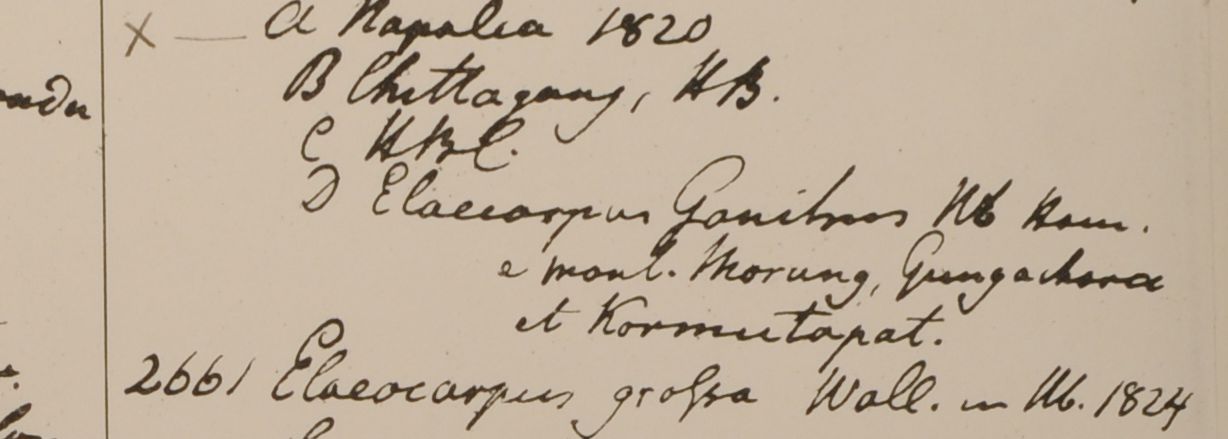 × — a Napalia 1820
B Chittagong, HB.
C HBC.
D Elaeocarpus Ganitrus Hb Ham.
e mont. Morung, Gungachora
et Kormutapat.
2661 Elaeocarpus grossa Wall. in Hb. 1824